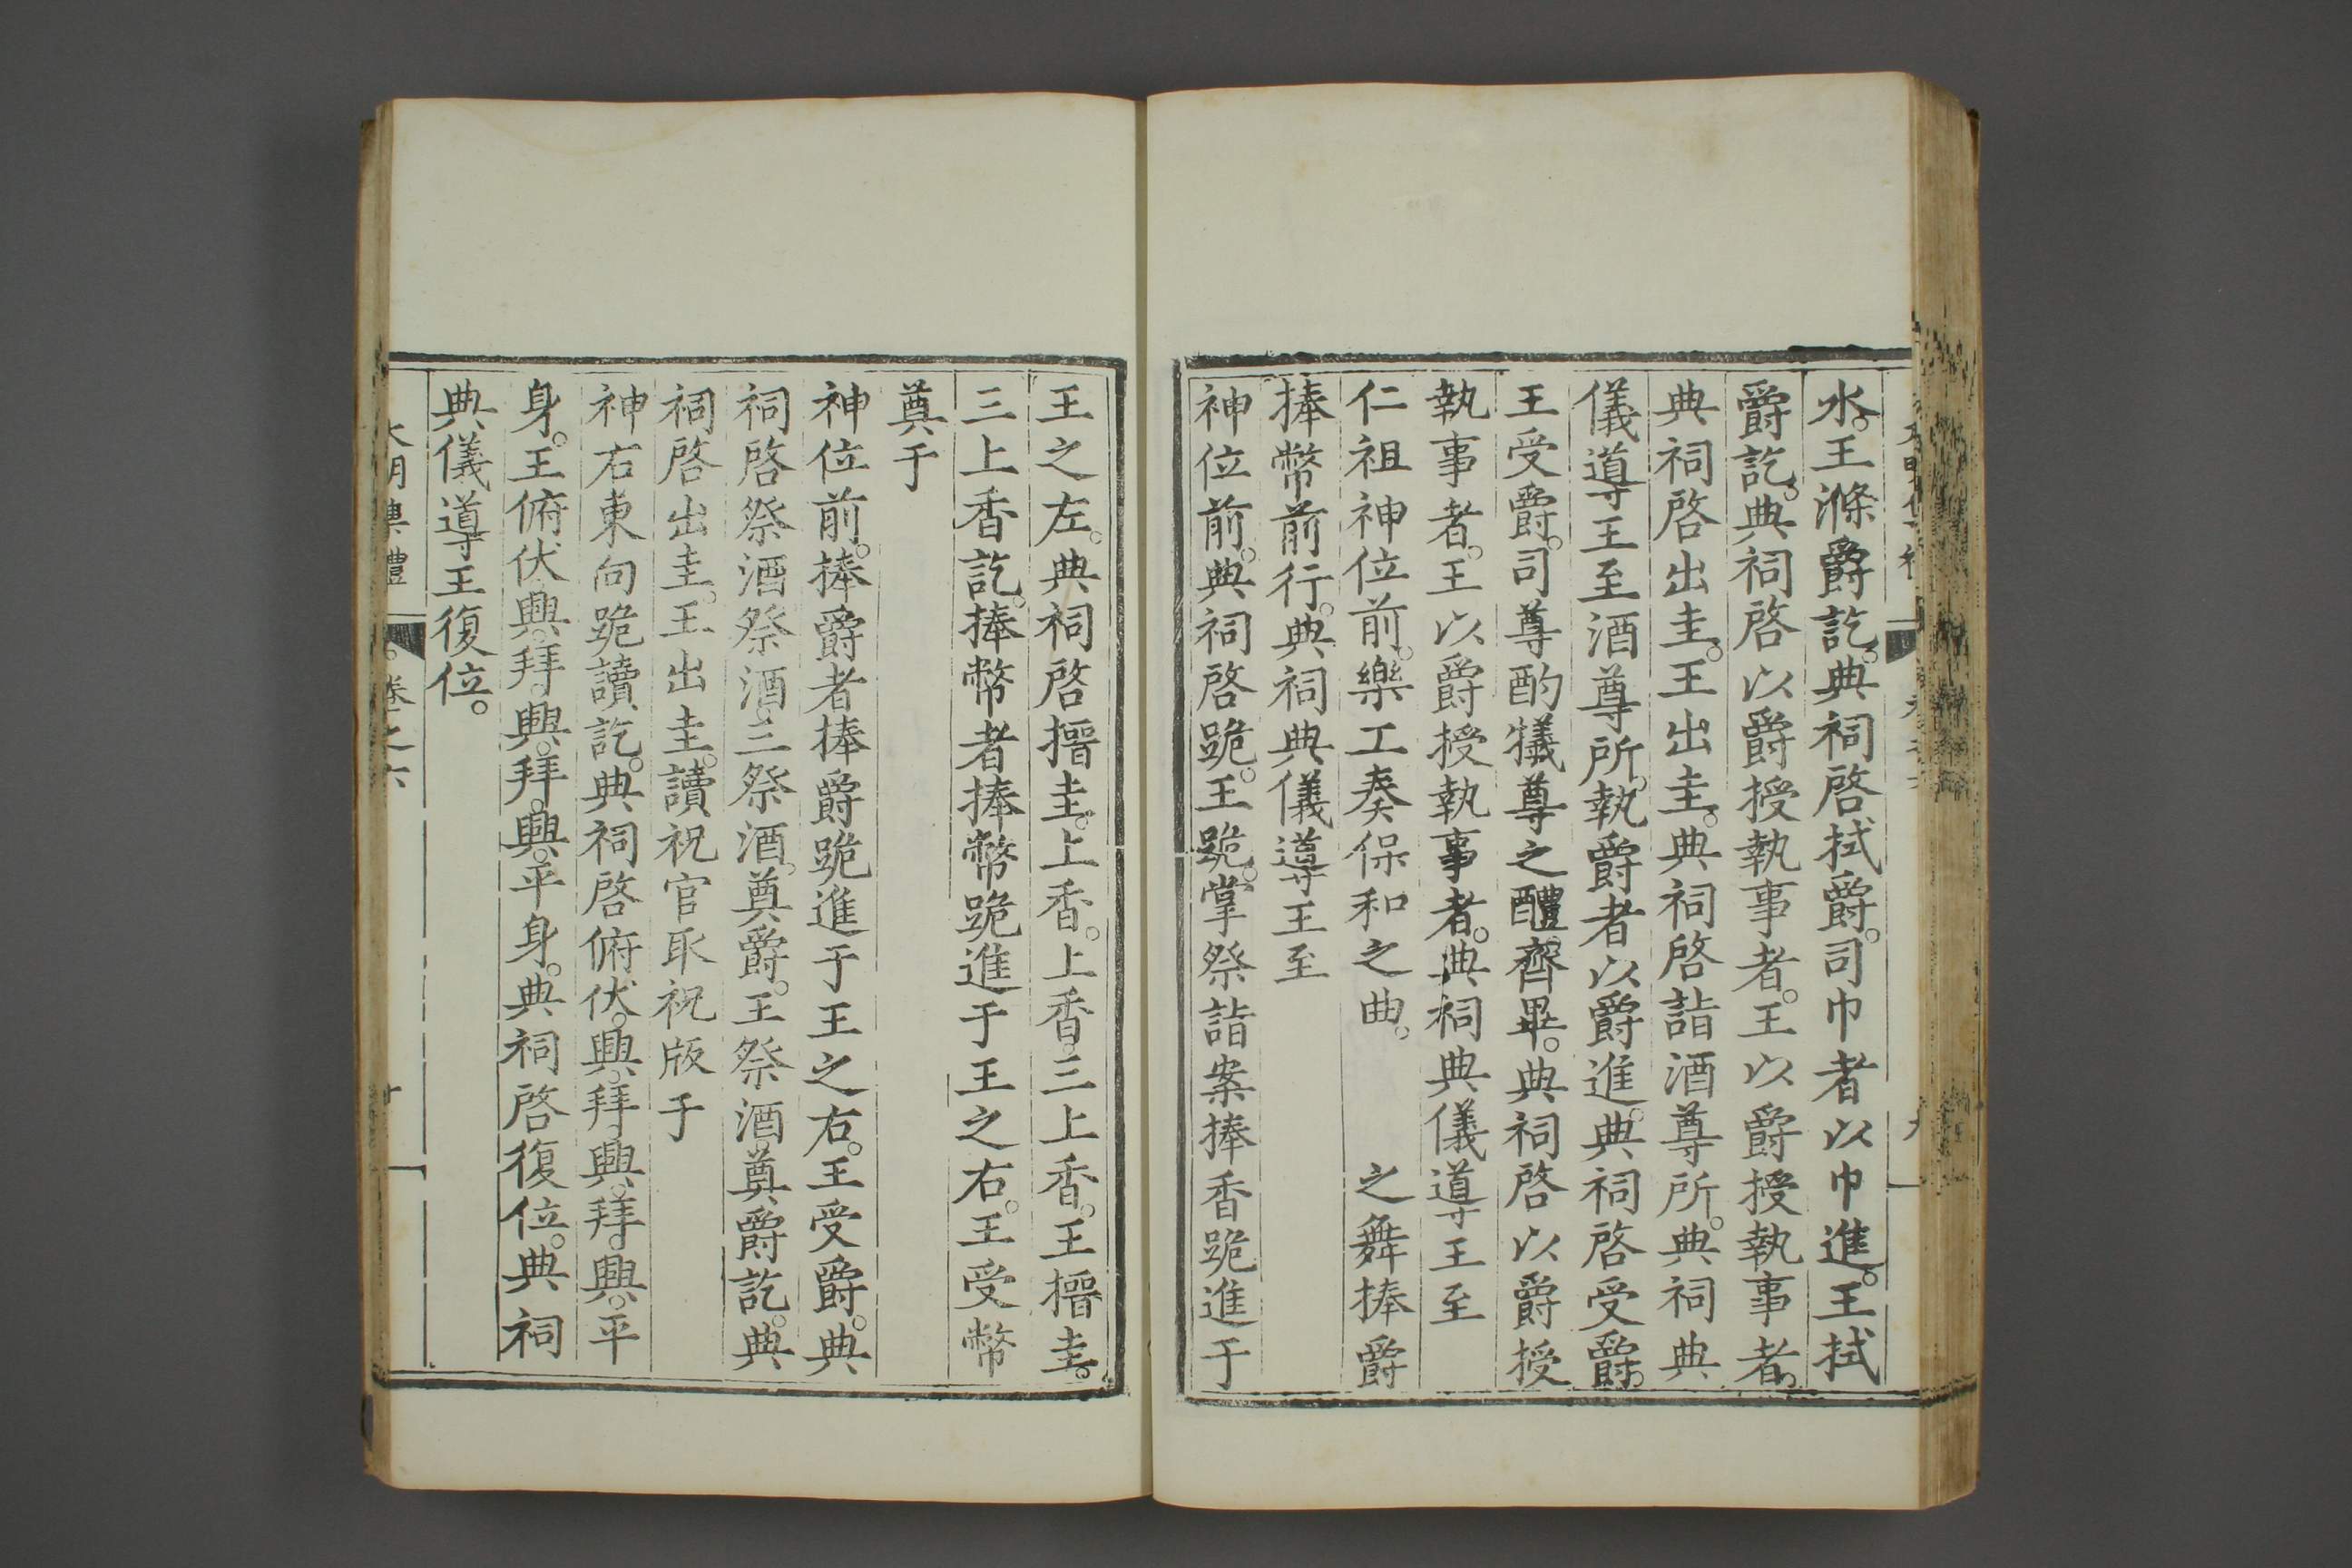 水。王滌爵訖。典祠啓拭爵。司巾者以巾進。王拭
爵訖。典祠啓以爵授執事者。王以爵授執事者。
典祠啓出圭。王出圭。典祠啓詣酒尊所。典祠典
儀導王至酒尊所。執爵者以爵進。典祠啓受爵。
王受爵。司尊酌犧尊之醴齊畢。典祠啓以爵授
執事者。王以爵授執事者。典祠典儀導王至
仁祖神位前。樂工奏保和之曲。　　之舞捧爵
捧幣前行。典祠典儀導王至
神位前。典祠啓跪。王跪。掌祭詣案捧香跪進于
王之左。典祠啓搢圭。上香。上香。三上香。王搢圭。
三上香訖。捧幣者捧幣跪進于王之右。王受幣
奠于
神位前。捧爵者捧爵跪進于王之右。王受爵。典
祠啓祭酒祭酒。三祭酒。奠爵。王祭酒奠爵訖。典
祠啓出圭。王出圭。讀祝官取祝版于
神右東向跪讀訖。典祠啓俯伏。興。拜。興。拜。興。平
身。王俯伏。興。拜。興。拜。興。平身。典祠啓復位。典祠
典儀導王復位。
大明集禮　卷之六　十